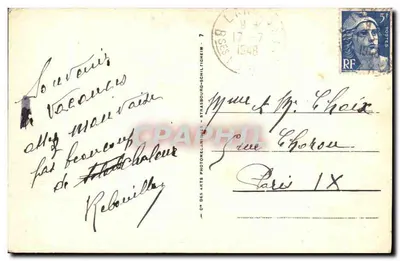 Souvenir
de vacances
mauvaise
pas beaucoup
de chaleur
Rebouillat
Cie DES ARTS PHOTOMECANIQUES - STRASBOURG-SCHILTIGHEIM - 7
17-7
1948
5F
POSTES
RF
Mme & Mr. Choix
5 rue Choron
Paris IX